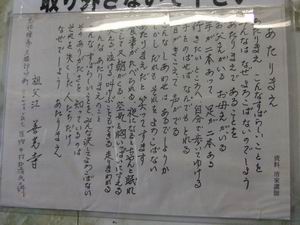 取り外さないで下さい
あたりまえ
あたりまえ こんなすばらしいことを
みんなはなぜよろこばないのでしょう
あたりまえであることを
お父さんがいる お母さんがいる
手が二本あって 足が二本ある
行きたいところへ自分で歩いてゆける
手をのばせばなんでもとれる
音がきこえて 声がでる
こんなしあわせはあるでしょうか
しかし だれもそれをよろこばない
あたりまえだと笑ってすます
食事がたべられる 夜になるとちゃんと眠れ
そして又朝がくる 空気を胸いっぱいにすえる
笑える 泣ける 叫ぶこともできる 走りまわれる
みんなあたりまえのこと
こんなすばらしいことを みんなは決してよろこばない
そのありがたさを知っているのは
それを失くした人たちだけ
なぜでしょう あたりまえ
祖父江 善光寺
資料